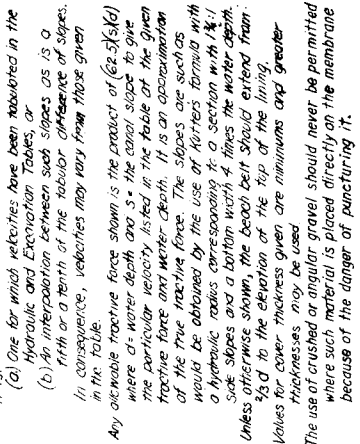 (a) One for which velocities have been tabulated in the
Hydraulic and Excavation Tables, or
(b) An interpolation between such slopes as is a
fifth or a tenth of the tabular difference of slopes.
In consequence, velocities may vary from those given
in the table.
Any allowable tractive force shown is the product of (62.5)(s)(d)
where d = water depth and s = the canal slope to give
the particular velocity listed in the table at the given
tractive force and water depth. It is an approximation
of the true tractive force. The slopes are such as
would be obtained by the use of Kutter's formula with
a hydraulic radius corresponding to a section with 1¾:1
side slopes and a bottom width 4 times the water depth.
Unless otherwise shown, the beach belt should extend from
⅔ d to the elevation of the top of the lining.
Values for cover thickness given are minimums and greater
thicknesses may be used.
The use of crushed or angular gravel should never be permitted
where such material is placed directly on the membrane
because of the danger of puncturing it.